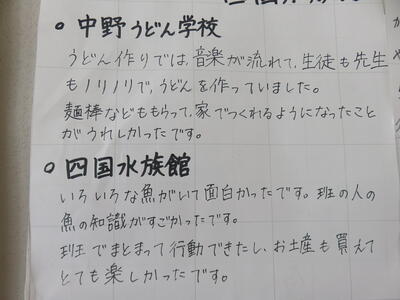 ○ 中野うどん学校
うどん作りでは、音楽が流れて、生徒も先生
もノリノリで、うどんを作っていました。
麺棒などももらって、家でつくれるようになったこと
がうれしかったです。
○ 四国水族館
いろいろな魚がいて面白かったです。班の人の
魚の知識がすごかったです。
班でまとまって行動できたし、お土産も買えて
とても楽しかったです。